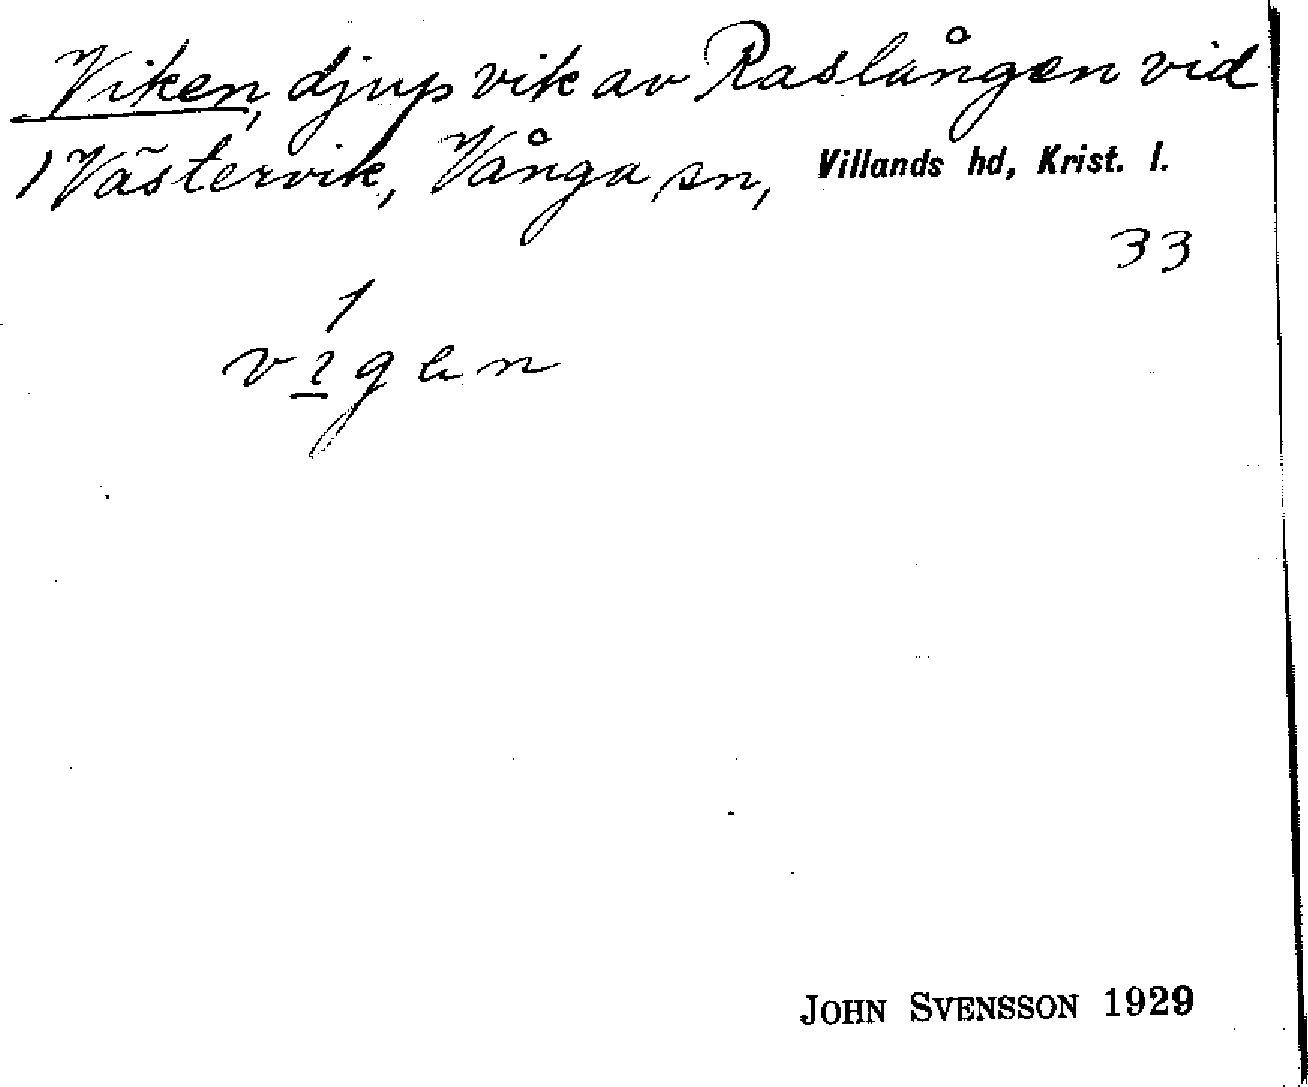 Viken, djup vik av Raslången vid
/ Västervik, Vånga sn, Villands hd, Krist. l.
33
vigen
JOHN SVENSSON 1929